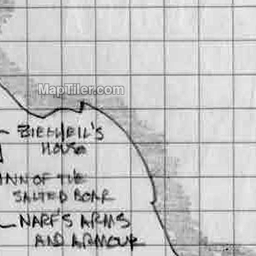 MapTiler.com
HOUSE
INN OF THE
SALTED BOAR
NARF'S ARMS
AND ARMOUR